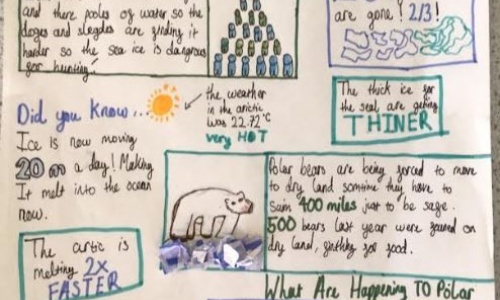 and there pooles of water so the
doges and slegdes are finding it
harder so the sea ice is dangerous
for hunting.
are gone? 2/3!
The thick ice for
the seal are geting
THINER
Did you know...
the weather
in the arictic
was 22.72°C
very HOT
Ice is now moving
20 m a day! Making
It melt into the ocean
now.
The artic is
melting 2x
FASTER
Polar bears are being forced to move
to dry land somtime they have to
swim 400 miles just to be sage.
500 bears last year were found on
dry land, for food.
What Are Happening TO Polar